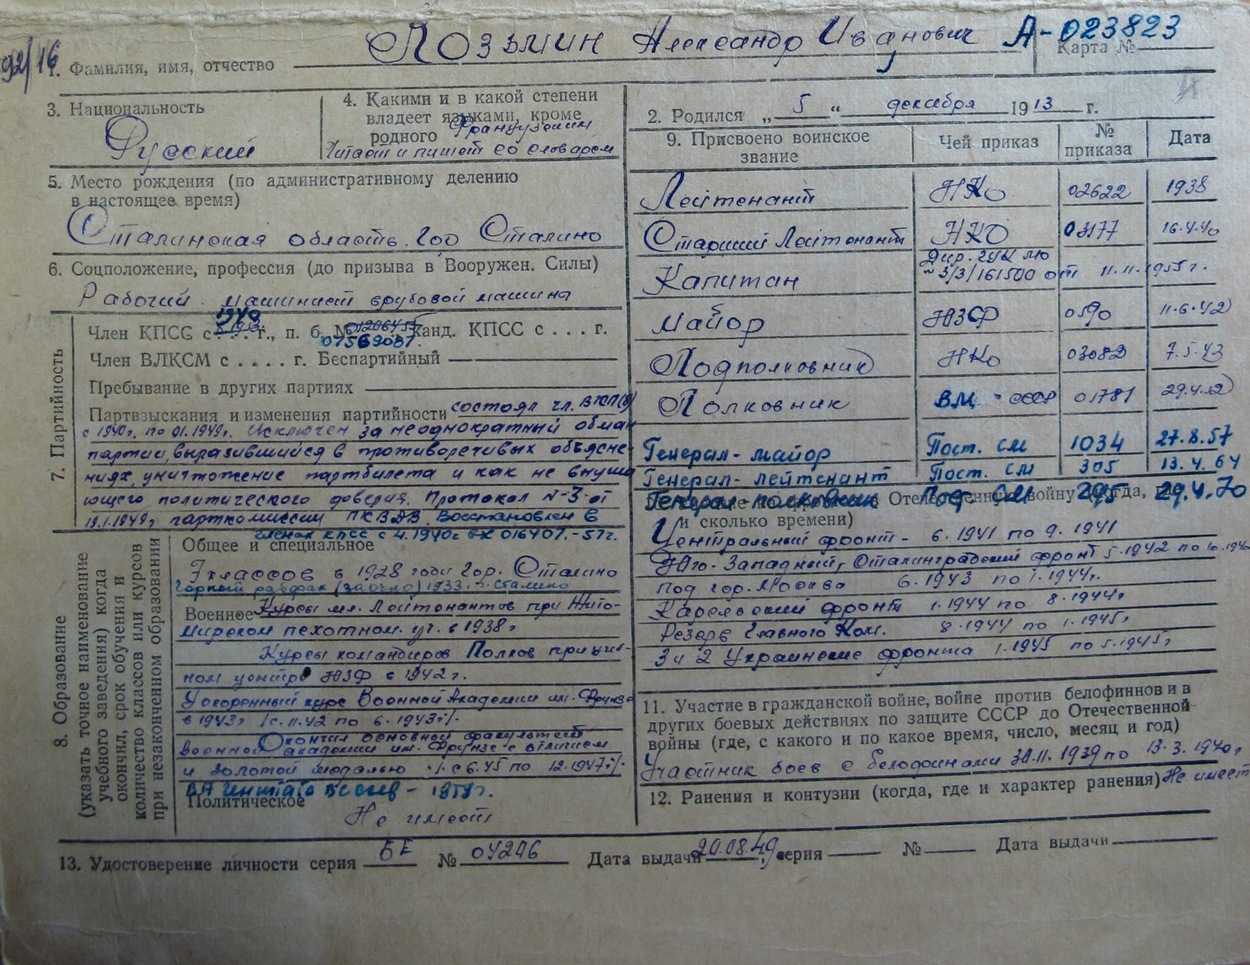 92/16
1. Фамилия, имя, отчество Лозымин Александр Иванович А-023823
Карта №
3. Национальность
Русский
4. Какими и в какой степени
владеет языками, кроме
родного Французским
Читает и пишет со словарем
2. Родился „ 5 “ декабря 1913 г.
5. Место рождения (по административному делению
в настоящее время)
Сталинская область. гор Сталино
6. Соцположение, профессия (до призыва в Вооружен. Силы)
Рабочий машинист врубовой машины
7. Партийность
Член КПСС с 1940 г., п. б. № 01569087 канд. КПСС с . . . г.
Член ВЛКСМ с . . . . г. Беспартийный
Пребывание в других партиях
Партвзыскания и изменения партийности состоял чл. ВКП(б)
с 1940г. по 01.1949г. Исключен за неоднократный обман
партии, выразившийся в противоречивых объясне-
ниях, уничтожение партбилета и как не внуша
ющего политического доверия. Протокол №3 от
13.1.1949г парткомиссии ПК ВДВ. Восстановлен в
членах КПСС с 4.1940г 016407.-57г.
8. Образование
(указать точное наименование
учебного заведения) когда
окончил, срок обучения и
количество классов или курсов
при незаконченном образовании
Общее и специальное
7 классов в 1928 году гор. Сталино
Горный рабфак (заочно) 1933 г. Сталино
Военное Курсы мл. Лейтенантов при Жито-
мирском пехотном. уч. в 1938г
Курсы командиров Полков при учеб-
ном центре ЮЗФ в 1942г.
Ускоренный курс Военной Академии им. Фрунзе
в 1943г /с.11.42 по 6.1943г/.
Окончил основной факультет
военной академии им. Фрунзе с отличием
и золотой медалью /с 6.45 по 12.1947г/.
ВА Генштаба - 1959г.
Политическое
Не имеет
9. Присвоено воинское
звание
Чей приказ
№
приказа
Дата
Лейтенант НКО 02622 1938
Старший Лейтенант НКО 03177 16.4.40
Капитан Дир. ГУК
№ 3/3/161500 от 11.11.1955г.
Майор ЮЗФ 0590 11.6.42
Подполковник НКО 03082 7.5.43
Полковник ВМ СССР 01781 29.4.
Генерал-майор Пост. СМ 1034 27.8.57
Генерал-лейтенант Пост. СМ 305 13.4.64
Генерал-полковник Пост. СМ 295 29.4.70
Отечественную войну (когда,
и сколько времени)
Центральный фронт - 6.1941 по 9.1941
Юго-Западный, Сталинградский фронт 5.1942 по 10.1942
под гор. Москва 6.1943 по 1.1944г.
Карельский фронт 1.1944 по 8.1944г
Резерв Главного Ком. 8.1944 по 1.1945г
3 и 2 Украинские фронта 1.1945 по 5.1945г
11. Участие в гражданской войне, войне против белофиннов и в
других боевых действиях по защите СССР до Отечественной
войны (где, с какого и по какое время, число, месяц и год)
Участник боев с белофинами 30.11.1939 по 13.3.1940г
12. Ранения и контузии (когда, где и характер ранения) Не имеет
13. Удостоверение личности серия БЕ № 04246 Дата выдачи 20.08.49 серия № Дата выдачи